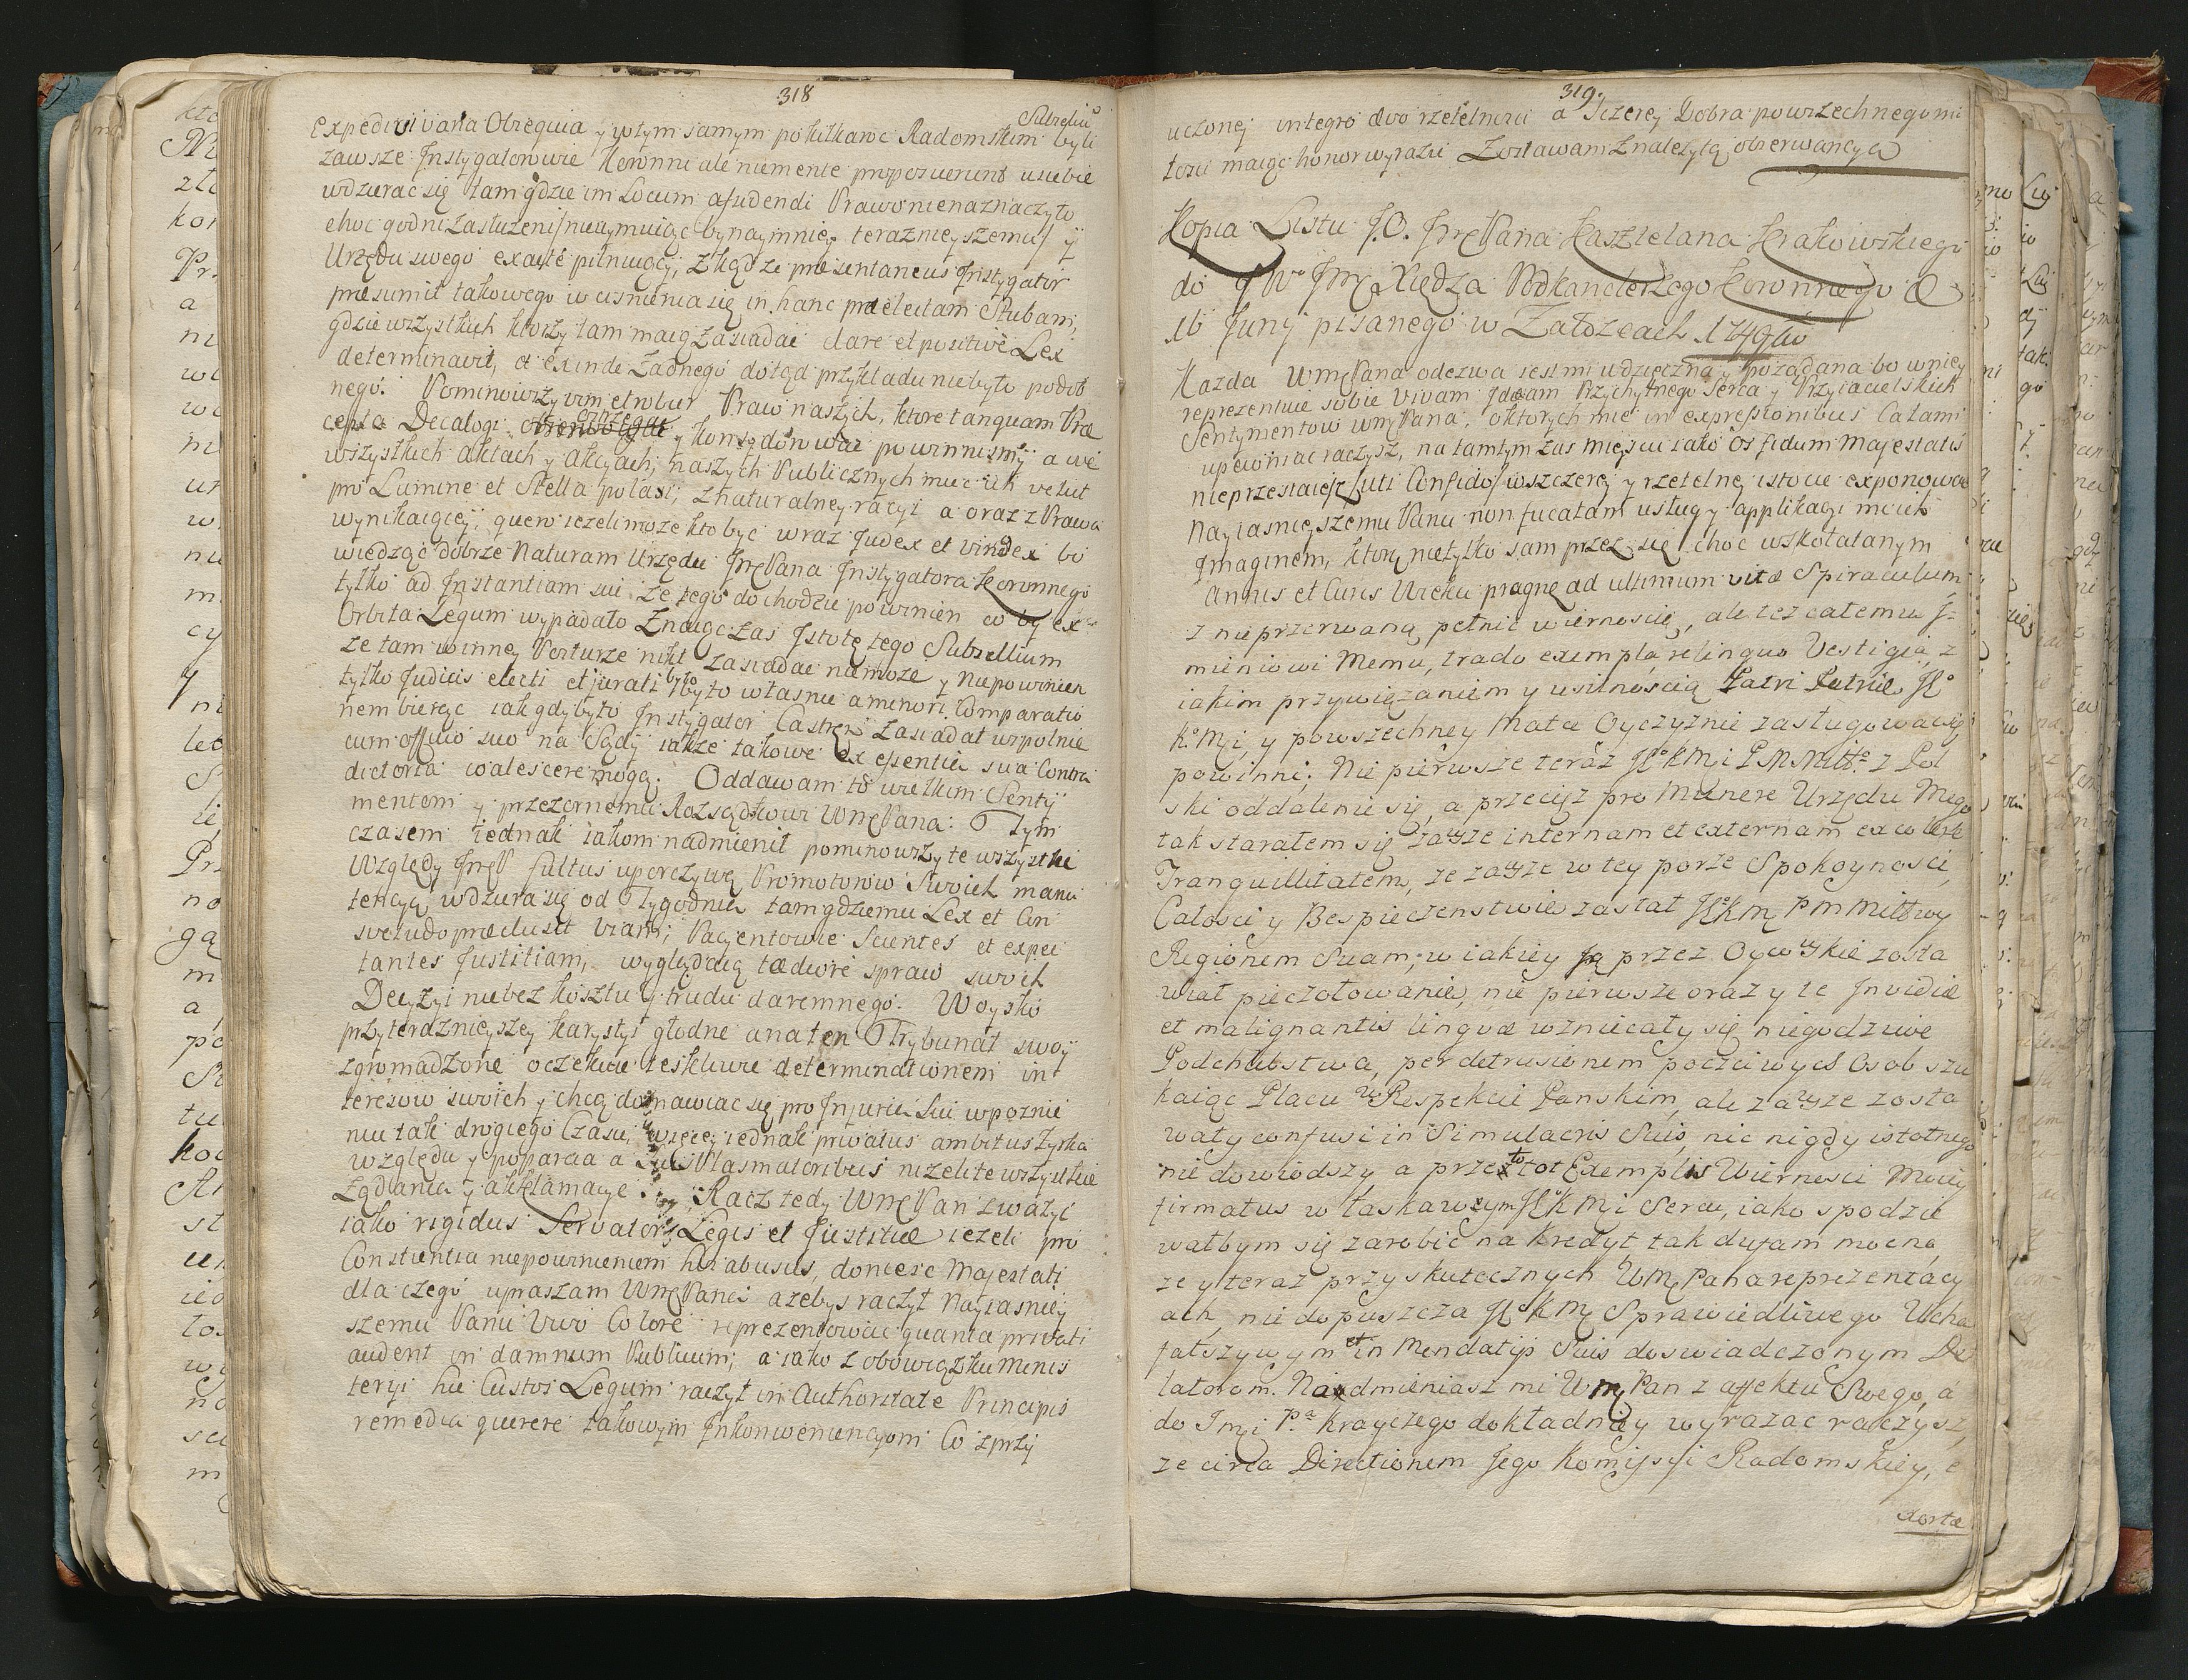 318
Subselliu
expediri varia Obsequia y wtym samym pokilkanc Radomskim byli
zawsze Instygatorowie Koronni ale niemente proposuerunt usiebie
wdzierac się tam gdzie im Locum assidendi Prawo nienaznaczyło
choc godni zasłuzeni nieuymuiąc bynaymniey teraznieyszemu y
Urzędu swego exacte pilnuiącey, zkąd ze presentaneus Instygator
presumit takowego wcisnienia się in hanc prælectam Stubam,
gdzie wszystkich ktorzy tam maią zasiadać clare et positive Lex
determinavit, et exinde zadnego dotąd przykładu niebyło podob
nego. Pominowszy vim et robur Praw naszych, ktore tanquam Præ
cepta Decalogi oraz ... y konsyderować powinnismy a we
wszystkich aktach y akcyach, naszych Publicznych miec ich velut
pro Lumine et Stella polari, z naturalney racyi a oraz z Prawa
wynikaiącey, quero iezeli moze kto byc wraz Judex et vindex bo
wiedząc dobrze Naturam Urzędu JmćPana Instygatora Koronnego
tylko ad Instantiam sui ze tego dochodzic powinien co by ex
Orbita Legum wypadało Znaiąc zas Istotę tego Subsellium
ze tam winney Posturze nikt zasiadac niemoze y niepowinien
tylko Judicis electi et jurati było to własnie a minori Comparatio
nem biorąc iak gdyby to Instygator Castren zasiadał wspolnie
cum officio suo na Sądy iakze takowe ex essentia sua Contra
dictoria walescere mogą. Oddawam to wielkim Senty
mentom y przezornemu Rozsądkowi WmćPana. Tym
czasem iednak iakom nadmienił pominowszy te wszystkie
Względy JmćP fultus uporczywą Promotorow Swoich manu
tencyą wdziera się od Tygodnia tam gdziemu Lex et Con
svetudo præclusit viam; Pacyentowie Scientes et expec
tantes Justitiam, wyglądaią tædiore spraw swoich
Decyzyi niebez kosztu y trudu daremnego. Woysko
przyteraznieyszey karystyi głodne a na ten Trybunał swoy
zgromadzone oczekiwa teskliwie determinationem in
teressow swoich y chcą domawiac się pro Injuria sui wpoznie
niu tak drogiego Czasu, więcey iednak privatus ambitus zyska
względu y poparcia a suis Plasmatoribus nizeli te wszystkie
Ządania y akklamacye. Racz tedy WmćPan zwazyc
iako rigidus Servator Legis et Justitiæ iezeli pro
Conscientia niepowinienem hos abusus, donieść Majestati
dla czego upraszam WmćPana azebys raczył Nayiasniey
szemu Panu Vivo Colore reprezentowac quanta privati
audent in damnum Publicum; a iako z obowiązku Minis
teryi hic Custos Legum raczył in Authoritate Principis
remedia querere takowym Inkonweniencyom Co zprzy
319.
uczoney integro ævo rzetelnosci a Szczerey Dobra powszechnego mi
łosci maiąc honor wyrazic Zostawam z należytą obserwancyą
Kopia Listu J.O. JmćPana Kasztelana Krakowskiego
do JW JmćXiędza Podkanclerzego Koronnego D
16 Junij pisanego w Załozcach 1749go
Kazda WmćPana odezwa iest mi wdzięczna y pozadana bo wniey
reprezentuie sobie Vivam Ideam Przychylnego Serca y Przyiacielskich
Sentymentow WmćPana, oktorych mie in expressionibus Calami
upewniac raczysz, na tamtym zas mieyscu iako Os fidum Majestatis
nieprzestaiesz /uti Confido/ wszczerey y rzetelney istocie exponowac
Nayiasnieyszemu Panu non fucatam usług y applikacyi moich
Imaginem, ktorą nietylko sam przez się choc wskołatanym
Annis et Curis Wieku pragnę ad ultimum vitæ Spiraculum
z nieprzerwaną pełnic wiernoscią, ale tez całemu J-
mieniowi Memu, trado exempla, relinquo Vestigia, z
iakim przywiązaniem y usilnoscią Patri Patriæ JKo
KoMci, y powszechney Matce Oyczyznie zasługowac się
powinni; Nie pierwsze teraz JKoKMci PNMiłtr z Pol
ski oddalenie się, a przeciesz pro Munere Urzędu Mego
tak starałem się zawsze internam et externam excolere
Tranquillitatem, ze zawsze w tey porze Spokoynosci,
Całosci y Bespieczenstwie zastał JKKMć PNMiłtwy
Regionem Suam, w iakiey Ją przez Oycowskie zosta
wiał pieczołowanie, nie pierwsze oraz y te Invidiæ
et malignantis linguæ wzniecały się niegodziwie
Podchlebstwa, per detrusionem poczciwych Osob szu
kaiąc Placu w Respekcie Panskim, ale zawsze zosta
wały confusi in Simulacris Suis, nic nigdy istotnego
nie dowiodszy a przez to tot Exemplis Wiernosci Moiey
firmatus w łaskawszym JKKMci Sercu, iako spodzie
wałbym się zarobic na kredyt, tak dufam mocno,
ze y teraz przy skutecznych WmćPana reprezentacy
ach, nie dopuszcza JKKMć Sprawiedliwego Ucha
fałszywym et in Mendatijs Suis doswiadczonym De
latorom. Nadmieniasz mi WmćPan z affektu Swego, a
do Jmci Pa Krayczego dokładniey wyrazac raczysz,
ze circa Directionem Jego Komissyi Radomskiey, e
dostæ